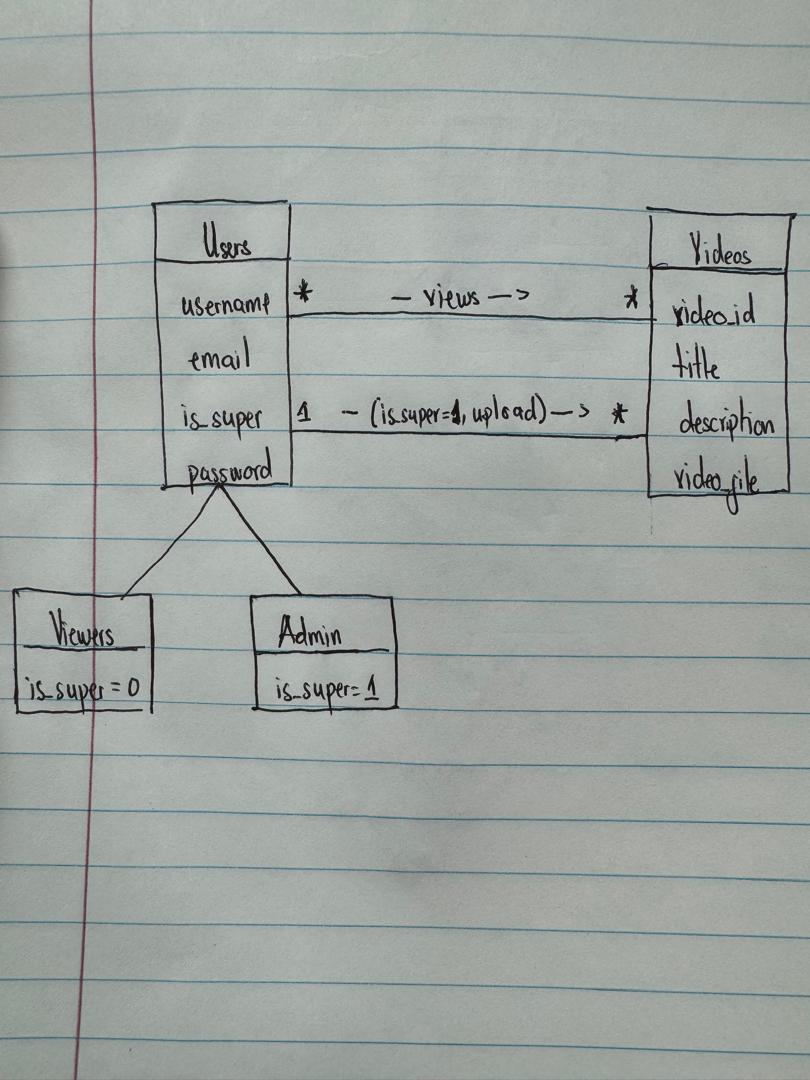 Users
username
email
is_super
password
* — views —> *
1 — (is_super=1, upload) —> *
Videos
video_id
title
description
video_file
Viewers
is_super = 0
Admin
is_super= 1